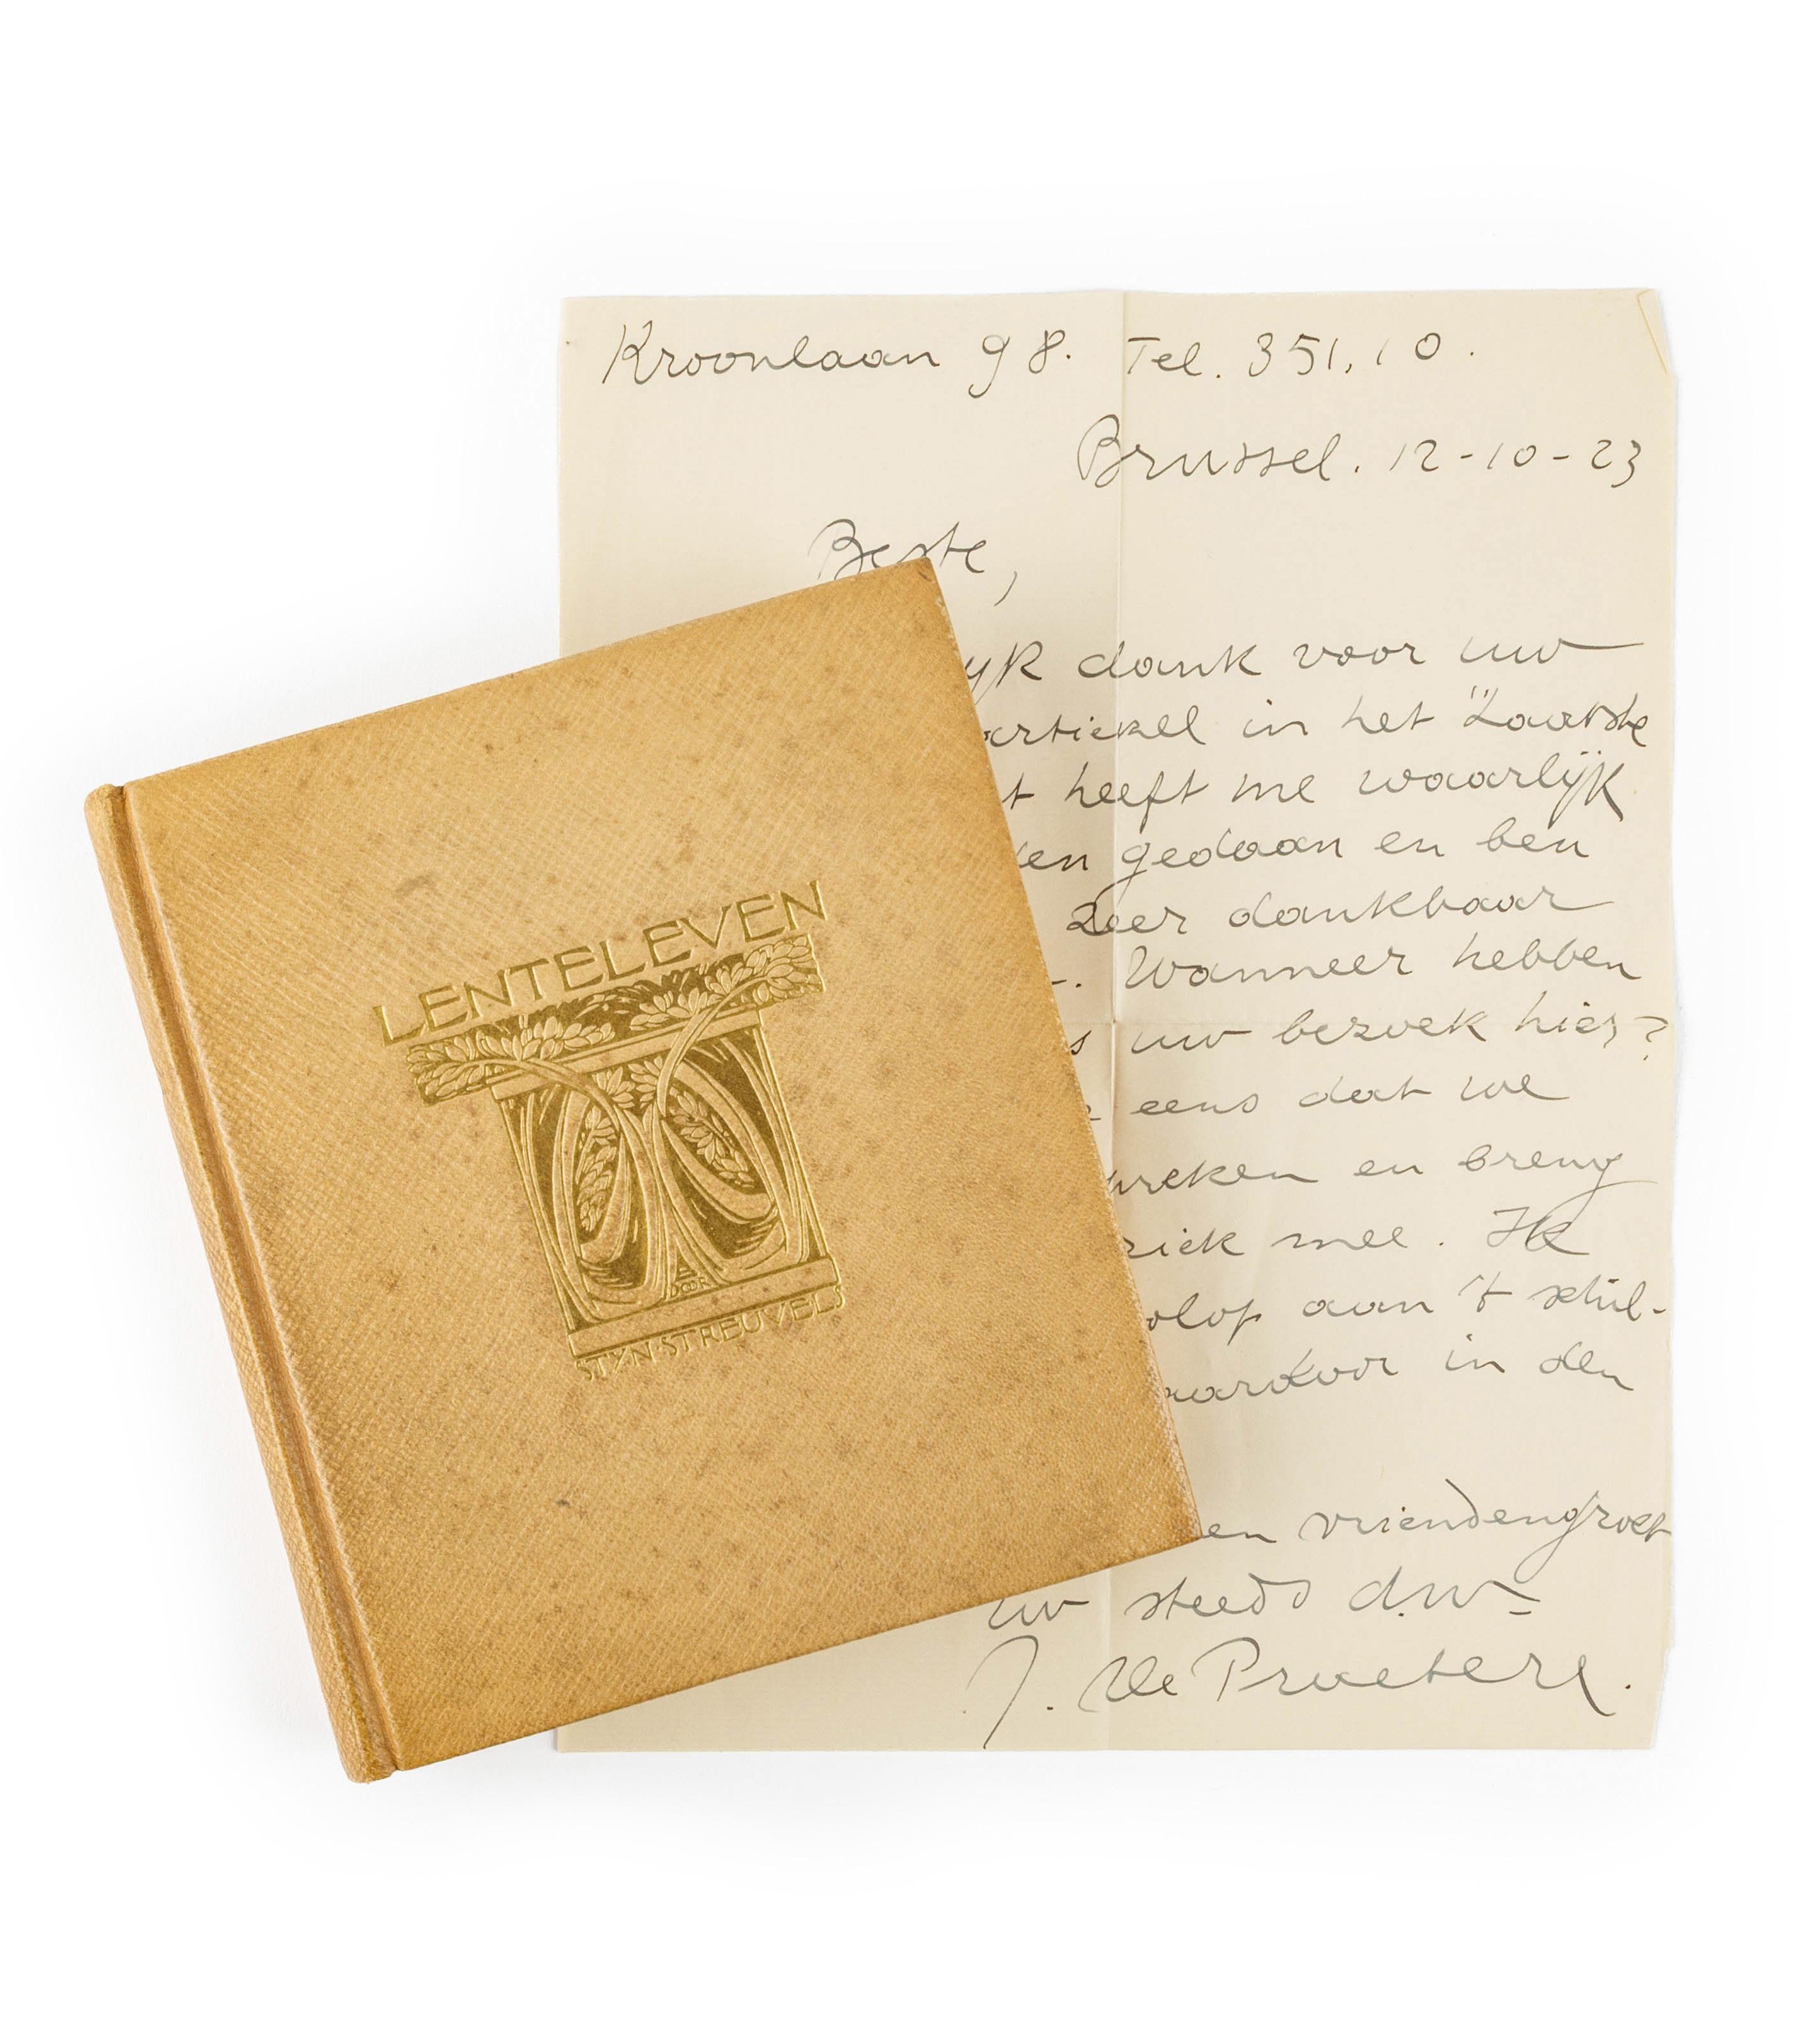 Kroonlaan 98. Tel. 351,10.
Brussel. 12-10-23
Beste,
dank voor uw
artiekel in het "Laatste
heeft me waarlijk
gedaan en ben
zeer dankbaar
Wanneer hebben
uw bezoek hier?
eens dat we
en breng
mee. Ik
aan 't schil-
in den
vriendengroet
uw steeds dw.
J. De Praetere.
LENTELEVEN
DOOR
STYN STREUVELS